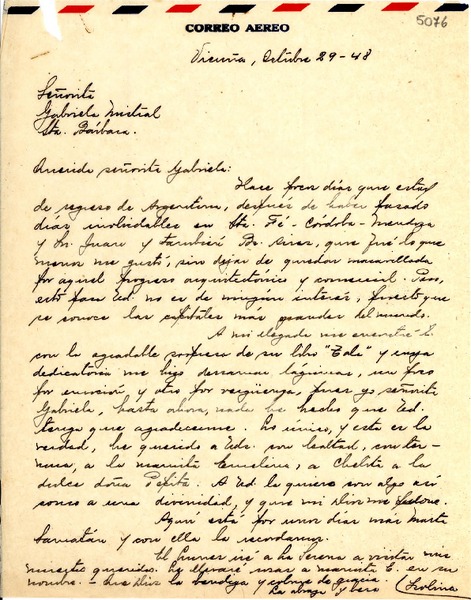 CORREO AEREO
5076
Vicuña, Octubre 29-48
Señorita
Gabriela Mistral
Sta. Bárbara.
Querida señorita Gabriela:
Hace pocos días que estoy
de regreso de Argentina, después de haber pasado
días inolvidables en Sta. Fé - Córdoba - Mendoza
y Sn. Juan y también Bs. Aires, que fué lo que
menos me gustó, sin dejar de quedar maravillada
por aquel progreso arquitectónico y comercial. Pero,
esto para Ud. no es de ningún interés, puesto que
se conoce las capitales más grandes del mundo.
A mi llegada me encontré
con la agradable sorpresa de su libro "Tala" y cuya
dedicatoria me hizo derramar lágrimas, un poco
por emoción, y otro por vergüenza, pues yo señorita
Gabriela, hasta ahora, nada he hecho que Ud.
tenga que agradecerme. Lo único, y esta es la
verdad, he querido a Uds. con lealtad, con ter-
nura, a la mamita Emelina, a Chelita a la
dulce doña Pepita. A Ud. la quiero con algo así
como a una divinidad, y que mi Dios me perdone.
Aquí está por unos días más Marta
Samatán y con ella la recordamos.
El jueves iré a La Serena a visitar mis
muertos queridos. Le llevaré rosas a mamita E. en su
nombre. - Que Dios la bendiga y colme de gracia.
La abraza y besa